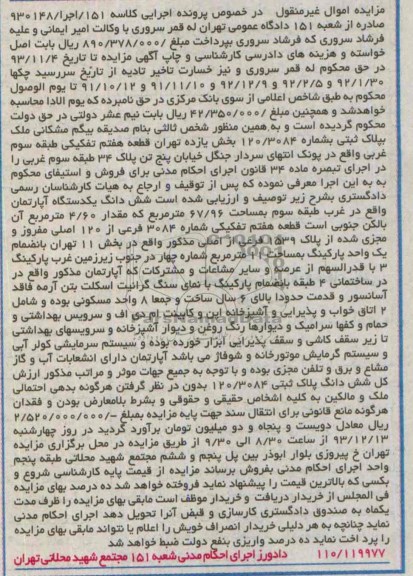 مزایده اموال غیرمنقول در خصوص پرونده اجرایی کلاسه ۱۵۱/اجرا/۹۳۰۱۴۸
صادره از شعبه ۱۵۱ دادگاه عمومی تهران له قمر سروری با وکالت امیر ایمانی و علیه
فرشاد سروری که فرشاد سروری بپرداخت مبلغ ۸۹۰/۳۷۸/۰۰۰/ ریال بابت اصل
خواسته و هزینه های دادرسی کارشناسی و چاپ آگهی مزایده تا تاریخ ۹۳/۱۱/۴
در حق محکوم له قمر سروری و نیز خسارت تاخیر تادیه از تاریخ سررسید چکها
۹۲/۱/۳۰ و ۹۲/۲/۵ و ۹۲/۱۲/۹ و ۹۱/۱۱/۱۰ و ۹۱/۱۰/۱۲ تا یوم الوصول
محکوم به طبق شاخص اعلامی از سوی بانک مرکزی در حق نامبرده که یوم الادا محاسبه
خواهدشد و همچنین مبلغ ۴۲/۳۵۰/۰۰۰/ ریال بابت نیم عشر دولتی در حق دولت
محکوم گردیده است و به همین منظور شخص ثالثی بنام صدیقه بیگم مشکانی ملک
بپلاک ثبتی بشماره ۱۲۰/۳۰۸۴ بخش یازده تهران قطعه هفتم تفکیکی طبقه سوم
غربی واقع در پونک انتهای سردار جنگل خیابان پنج تن پلاک ۳۴ طبقه سوم غربی را
در اجرای تبصره ماده ۳۴ قانون اجرای احکام مدنی برای فروش و استیفای محکوم
به به این اجرا معرفی نموده که پس از توقیف و ارجاع به هیات کارشناسان رسمی
دادگستری بشرح زیر توصیف و ارزیابی شده است شش دانگ یکدستگاه آپارتمان
واقع در غرب طبقه سوم بمساحت ۶۷/۹۶ مترمربع که مقدار ۴/۶۰ مترمربع آن
بالکن جنوبی است قطعه هفتم تفکیکی شماره ۳۰۸۴ فرعی از ۱۲۰ اصلی مفروز و
مجزی شده از پلاک ۵۳۹ فرعی از اصلی مذکور واقع در بخش ۱۱ تهران بانضمام
یک واحد پارکینگ بمساحت مترمربع شماره چهار در جنوب زیرزمین غرب پارکینگ
۳ با قدرالسهم از عرصه و سایر مشاعات و مشترکات که آپارتمان مذکور واقع در
در ساختمانی ۴ طبقه بانضمام پارکینگ با نمای سنگ گرانیت اسکلت بتن آرمه فاقد
آسانسور و قدمت حدودا بالای ۶ سال ساخت و جمعا ۸ واحد مسکونی بوده و شامل
۲ اتاق خواب و پذیرایی و آشپزخانه اپن و کابینت ام دی اف و سرویس بهداشتی و
حمام و کفها سرامیک و دیوارها رنگ روغن و دیوار آشپزخانه و سرویسهای بهداشتی
تا زیر سقف کاشی و سقف پذیرایی ابزار خورده بوده و سیستم سرمایشی کولر آبی
و سیستم گرمایش موتورخانه و شوفاژ می باشد آپارتمان دارای انشعابات آب و گاز
مشاع و برق و تلفن مجزی بوده و با توجه به جمیع جهات موثر و مراتب مذکور ارزش
کل شش دانگ پلاک ثبتی ۱۲۰/۳۰۸۴ بدون در نظر گرفتن هرگونه بدهی احتمالی
ملک و مالکین به کلیه اشخاص حقیقی و حقوقی و بشرط بلامعارض بودن و فقدان
هرگونه مانع قانونی برای انتقال سند جهت پایه مزایده بمبلغ ۲/۵۲۰/۰۰۰/۰۰۰/-
ریال معادل دویست و پنجاه و دو میلیون تومان برآورد گردید در روز چهارشنبه
۹۳/۱۲/۱۳ از ساعت ۸/۳۰ الی ۹/۳۰ از طریق مزایده در محل برگزاری مزایده
تهران خ پیروزی بلوار ابوذر بین پل پنجم و ششم مجتمع شهید محلاتی طبقه پنجم
واحد اجرای احکام مدنی بفروش برساند مزایده از قیمت پایه کارشناسی شروع و
بکسی که بالاترین قیمت را پیشنهاد نماید فروخته خواهد شد ده درصد بهای مزایده
فی المجلس از خریدار دریافت و خریدار موظف است مابقی بهای مزایده را ظرف مدت
یکماه به صندوق دادگستری کارسازی و قبض آنرا تحویل دهد اجرای احکام مدنی
نماید چنانچه به هر دلیلی خریدار انصراف خویش را اعلام یا نتواند مابقی بهای مزایده
را پرد اخت نماید ده درصد واریزی بنفع دولت ضبط خواهد شد
۱۱۰/۱۱۹۹۷۷ دادورز اجرای احکام مدنی شعبه ۱۵۱ مجتمع شهید محلاتی تهران